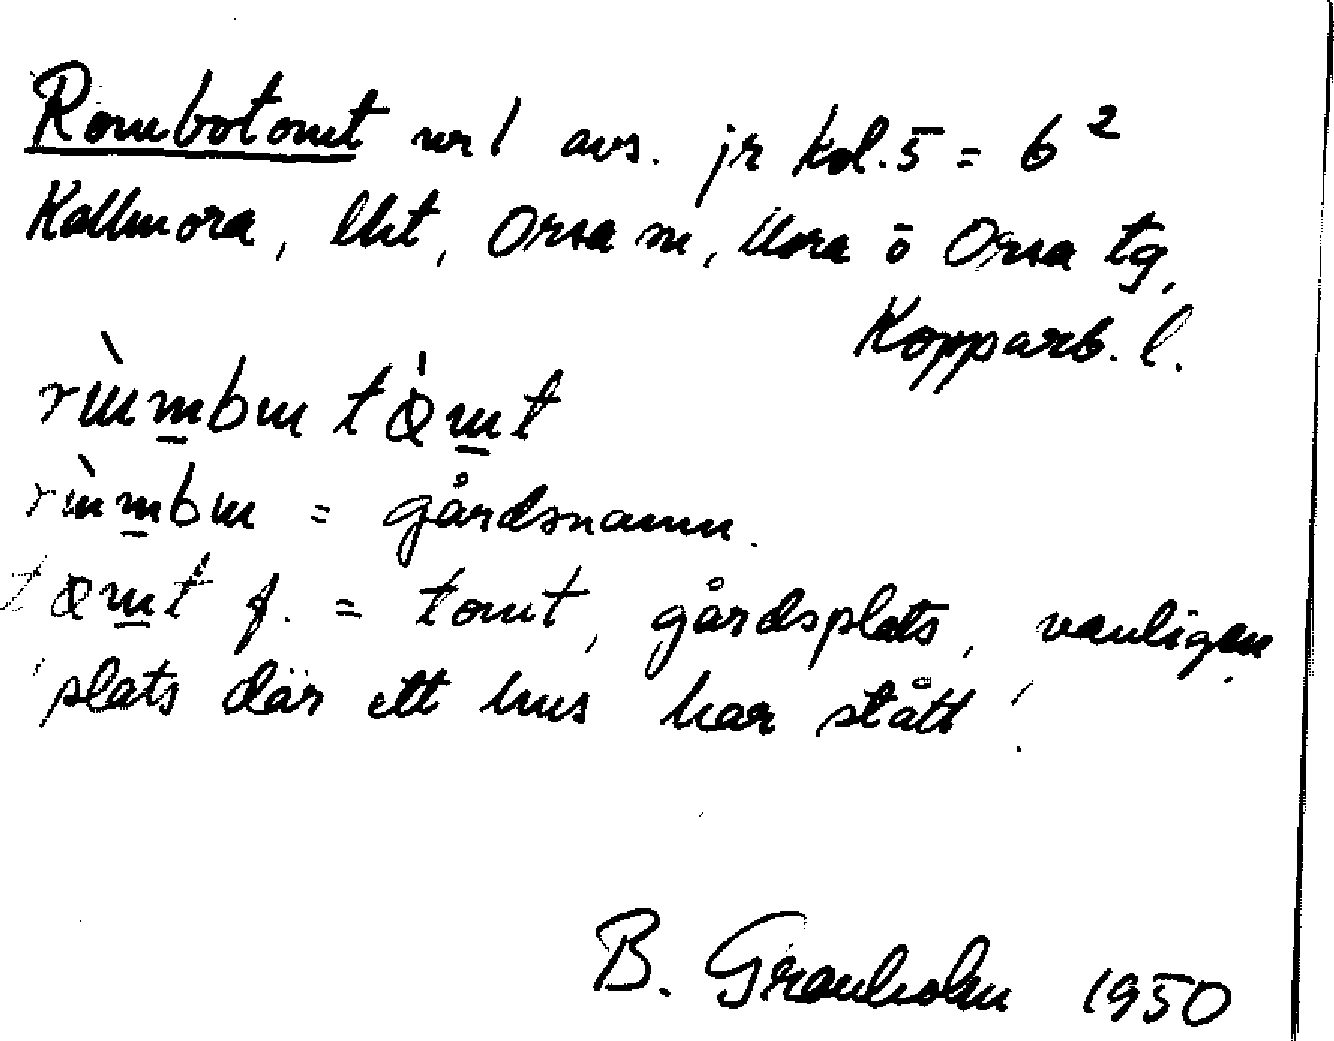 Rombotomt nr 1 avs. jr kol. 5 = 6²
Kallmora, lkt, Orsa sn, Mora o Orsa tg,
Kopparb. l.
rɯ̀m̠bɯ tꞷ̀m̠t
rɯ̀m̠bɯ = gårdsnamn.
tꞷm̠t f. = tomt, gårdsplats, vanligen
'plats där ett hus har stått'.
B. Granholm 1950